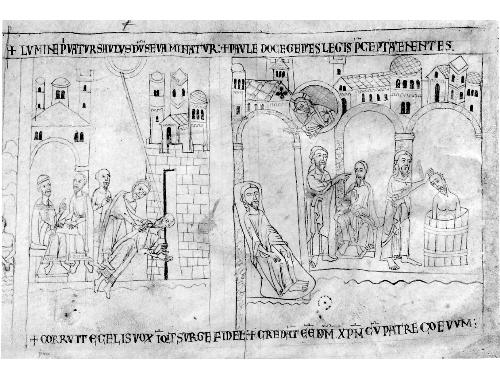 + LVMINE PVATVR SAVLVS DV SEVAMINATVR: + PAVLE DOCE GENTES LEGIS PCEPTA TENENTES.
+ CORRVIT E CELIS VOX SVRGE FIDEL + CREDAT EE DM XPM CV PATRE COEVVM: